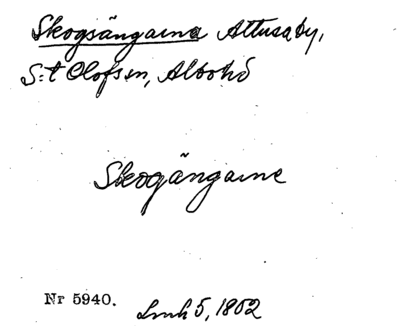 Skogsängarne Attusaby,
S:t Olofs sn, Albo hd
Skogängarne
Nr 5940. Lmh 5, 1802